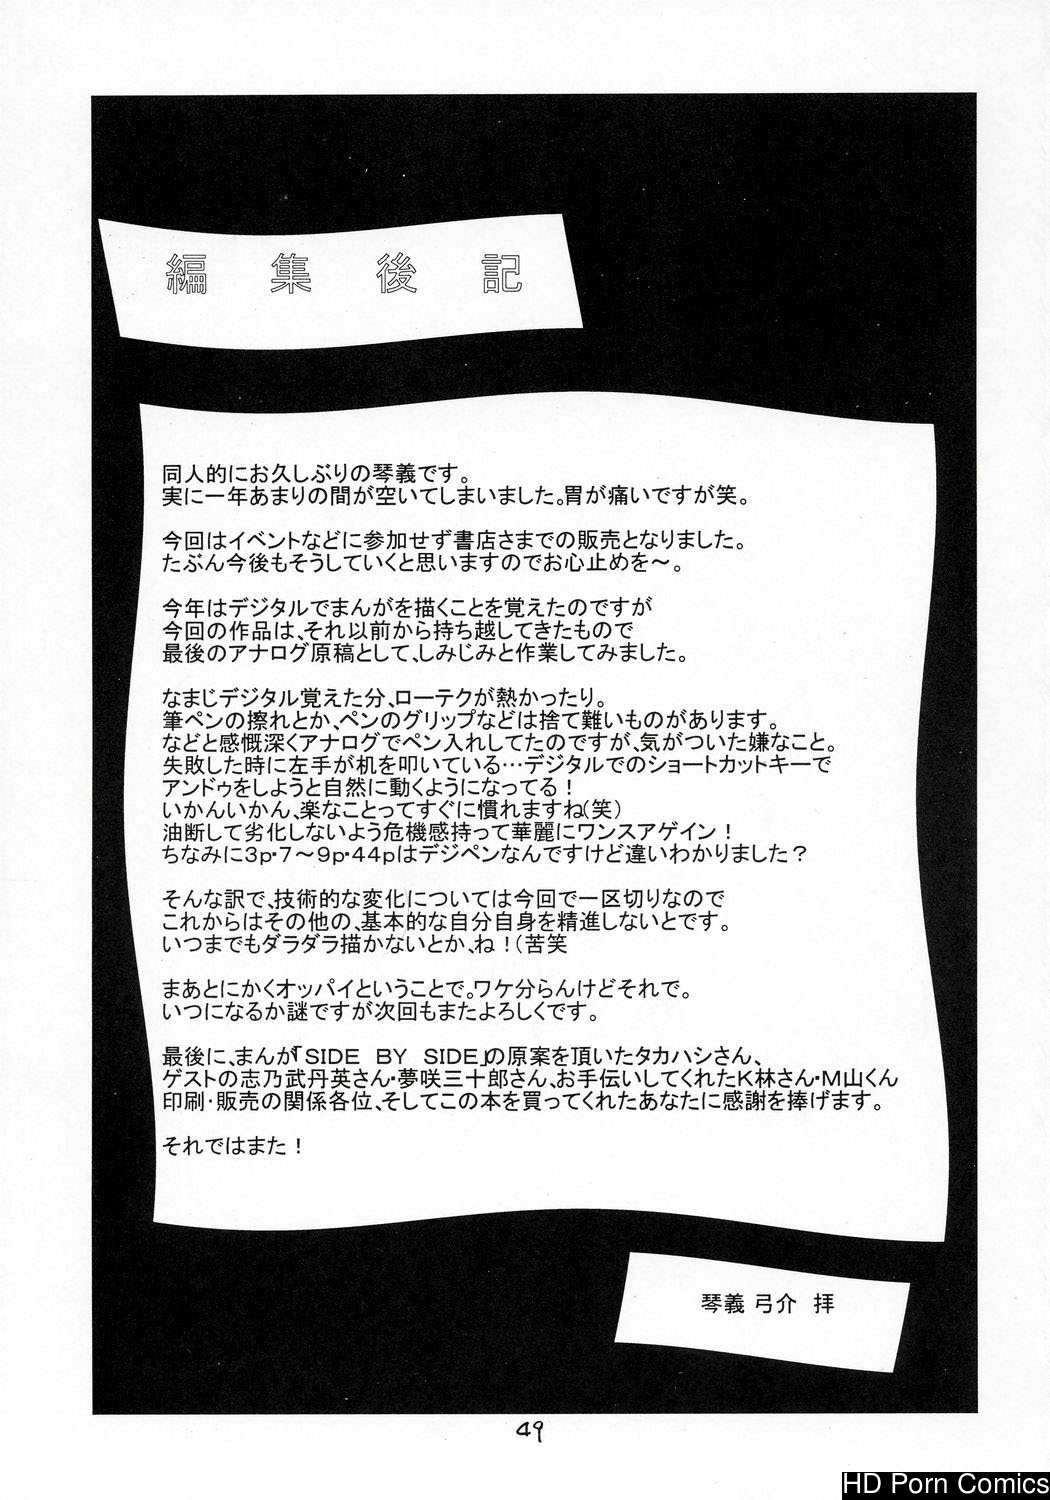 編集後記
同人的にお久しぶりの琴義です。
実に一年あまりの間が空いてしまいました。胃が痛いですが笑。
今回はイベントなどに参加せず書店さまでの販売となりました。
たぶん今後もそうしていくと思いますのでお心止めを～。
今年はデジタルでまんがを描くことを覚えたのですが
今回の作品は、それ以前から持ち越してきたもので
最後のアナログ原稿として、しみじみと作業してみました。
なまじデジタル覚えた分、ローテクが熱かったり。
筆ペンの擦れとか、ペンのグリップなどは捨て難いものがあります。
などと感慨深くアナログでペン入れしてたのですが、気がついた嫌なこと。
失敗した時に左手が机を叩いている…デジタルでのショートカットキーで
アンドゥをしようと自然に動くようになってる！
いかんいかん、楽なことってすぐに慣れますね(笑)
油断して劣化しないよう危機感持って華麗にワンスアゲイン！
ちなみに3p・7～9p・44pはデジペンなんですけど違いわかりました？
そんな訳で、技術的な変化については今回で一区切りなので
これからはその他の、基本的な自分自身を精進しないとです。
いつまでもダラダラ描かないとか、ね！(苦笑
まあとにかくオッパイということで。ワケ分らんけどそれで。
いつになるか謎ですが次回もまたよろしくです。
最後に、まんが「SIDE BY SIDE」の原案を頂いたタカハシさん、
ゲストの志乃武丹英さん・夢咲三十郎さん、お手伝いしてくれたK林さん・M山くん
印刷・販売の関係各位、そしてこの本を買ってくれたあなたに感謝を捧げます。
それではまた！
琴義 弓介 拝
49
HD Porn Comics